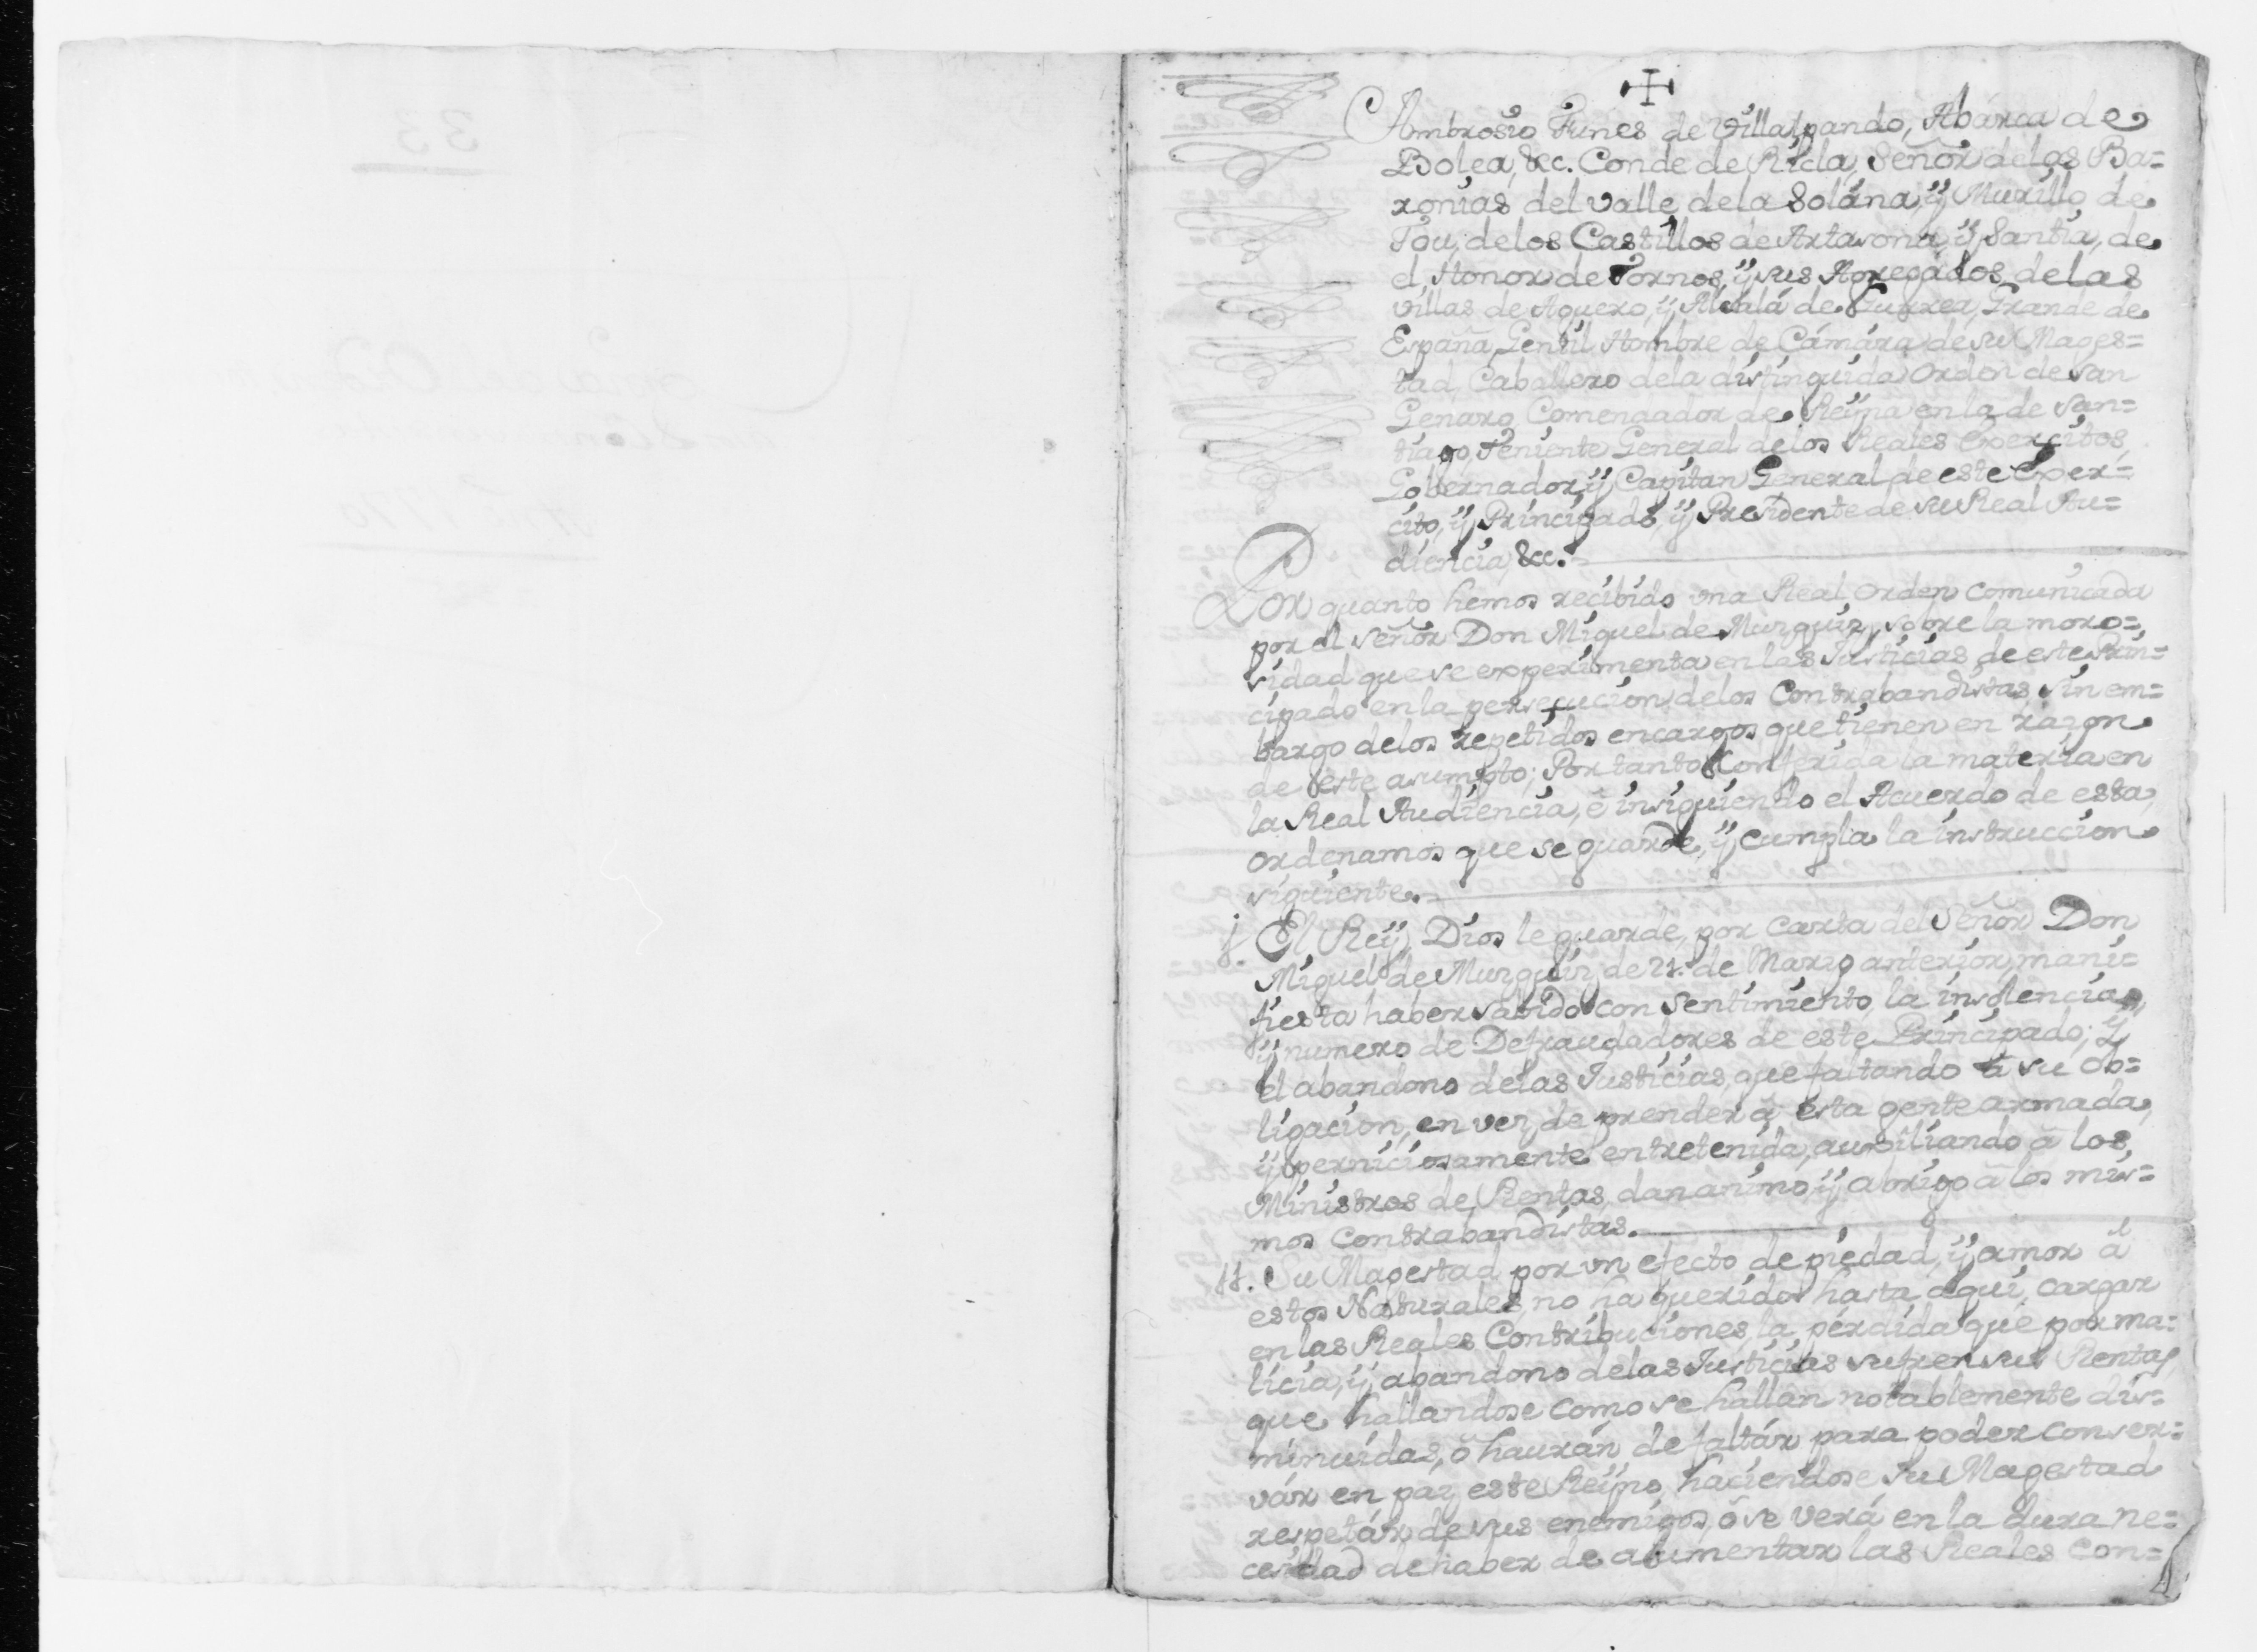 Ambrosio Funes de Villalpando, Abárca de
Bolea, &c. Conde de Ricla, Señor delas Ba=
ronías del Valle dela Solána, ÿ Murillo de
Tou, delos Castillos de Artasona, ÿ Santia, de
el Honor de Tornos, ÿ sus Agregádos, delas
Villas de Aguero, ÿ Alcalá de Gurrea, Grande de
España, Gentil Hombre de Cámára de su Mages=
tad, Caballero dela distinguida Orden de San
Genaro, Comendador de Reÿna en la de San=
tiago, Teniente General delos Reales Exercitos,
Gobernador, ÿ Capitan General de este Exer=
cito, ÿ Principado, ÿ Presidente de su Real Au=
diencia, &c.
Por quanto hemos recibido una Real Orden comunicada
por el Señor Don Miguel de Muzquiz, sobre la moro=
sidad que se experimenta en las Justicias de este Prin=
cipado en la persecucion delos Contrabandistas, sin em=
bargo delos repetidos encargos que tienen en razon
de este asumpto; Por tanto conferida la materia en
la Real Audiencia, é insiguiendo el Acuerdo de esta,
Ordenamos que se guarde, ÿ cumpla la instruccion
siguiente.
j. El Reÿ, Dios le guarde, por carta del Señor Don
Miguel de Muzquiz de 21. de Marzo anterior, mani=
fiesta haber sabido con sentimiento, la insolencia,
ÿ numero de Defraudadores de este Principado; ÿ
el abandono delas Justicias, que faltando à su ob=
ligacion, en vez de prender à esta gente armada,
ÿ perniciosamente entretenida, auxiliando à los
Ministros de Rentas, dan animo, ÿ abrigo à los mis=
mos Contrabandistas.
jj. Su Magestad por un efecto de piedad, ÿ amor à
estos Naturales, no ha querido hasta aqui, cargar
en las Reales Contribuciones, la pérdida que por ma=
licia, ÿ abandono delas Justicias sufren sus Rentas,
que hallandose como se hallan notablemente dis=
minuidas, ò hauràn de faltár para poder conser=
vár en paz este Reÿno, haciendose Su Magestad
respetár de sus enemigos, ò se verá en la dura ne=
cesidad de haber de aumentar las Reales Con=